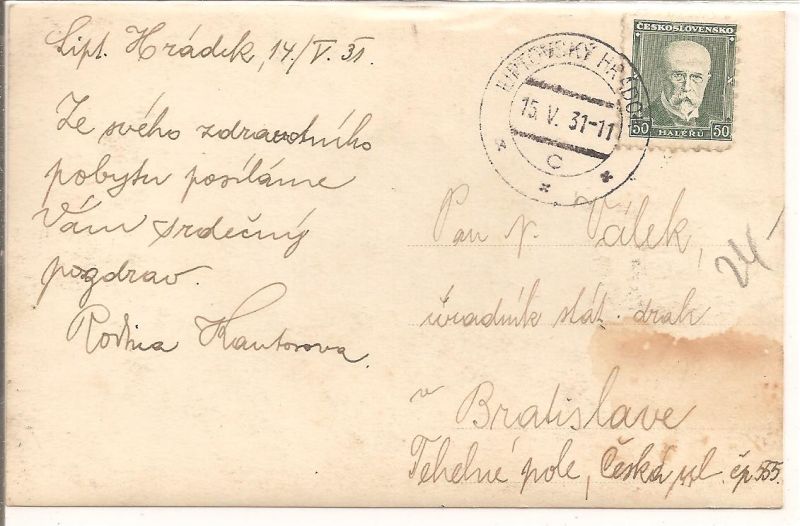 Lipt. Hrádek, 14/V. 31.
Ze svého zdravotního
pobytu posíláme
Vám srdečný
pozdrav.
Rodina Kantorova.
ČESKOSLOVENSKO
50 HALÉŘŮ 50
LIPTOVSKÝ HRÁDOK
15. V. 31-11
C
Pan Válek,
úřadník stát. drah
v
Bratislave
Tehelné pole, Česká ul. čp 555.
24